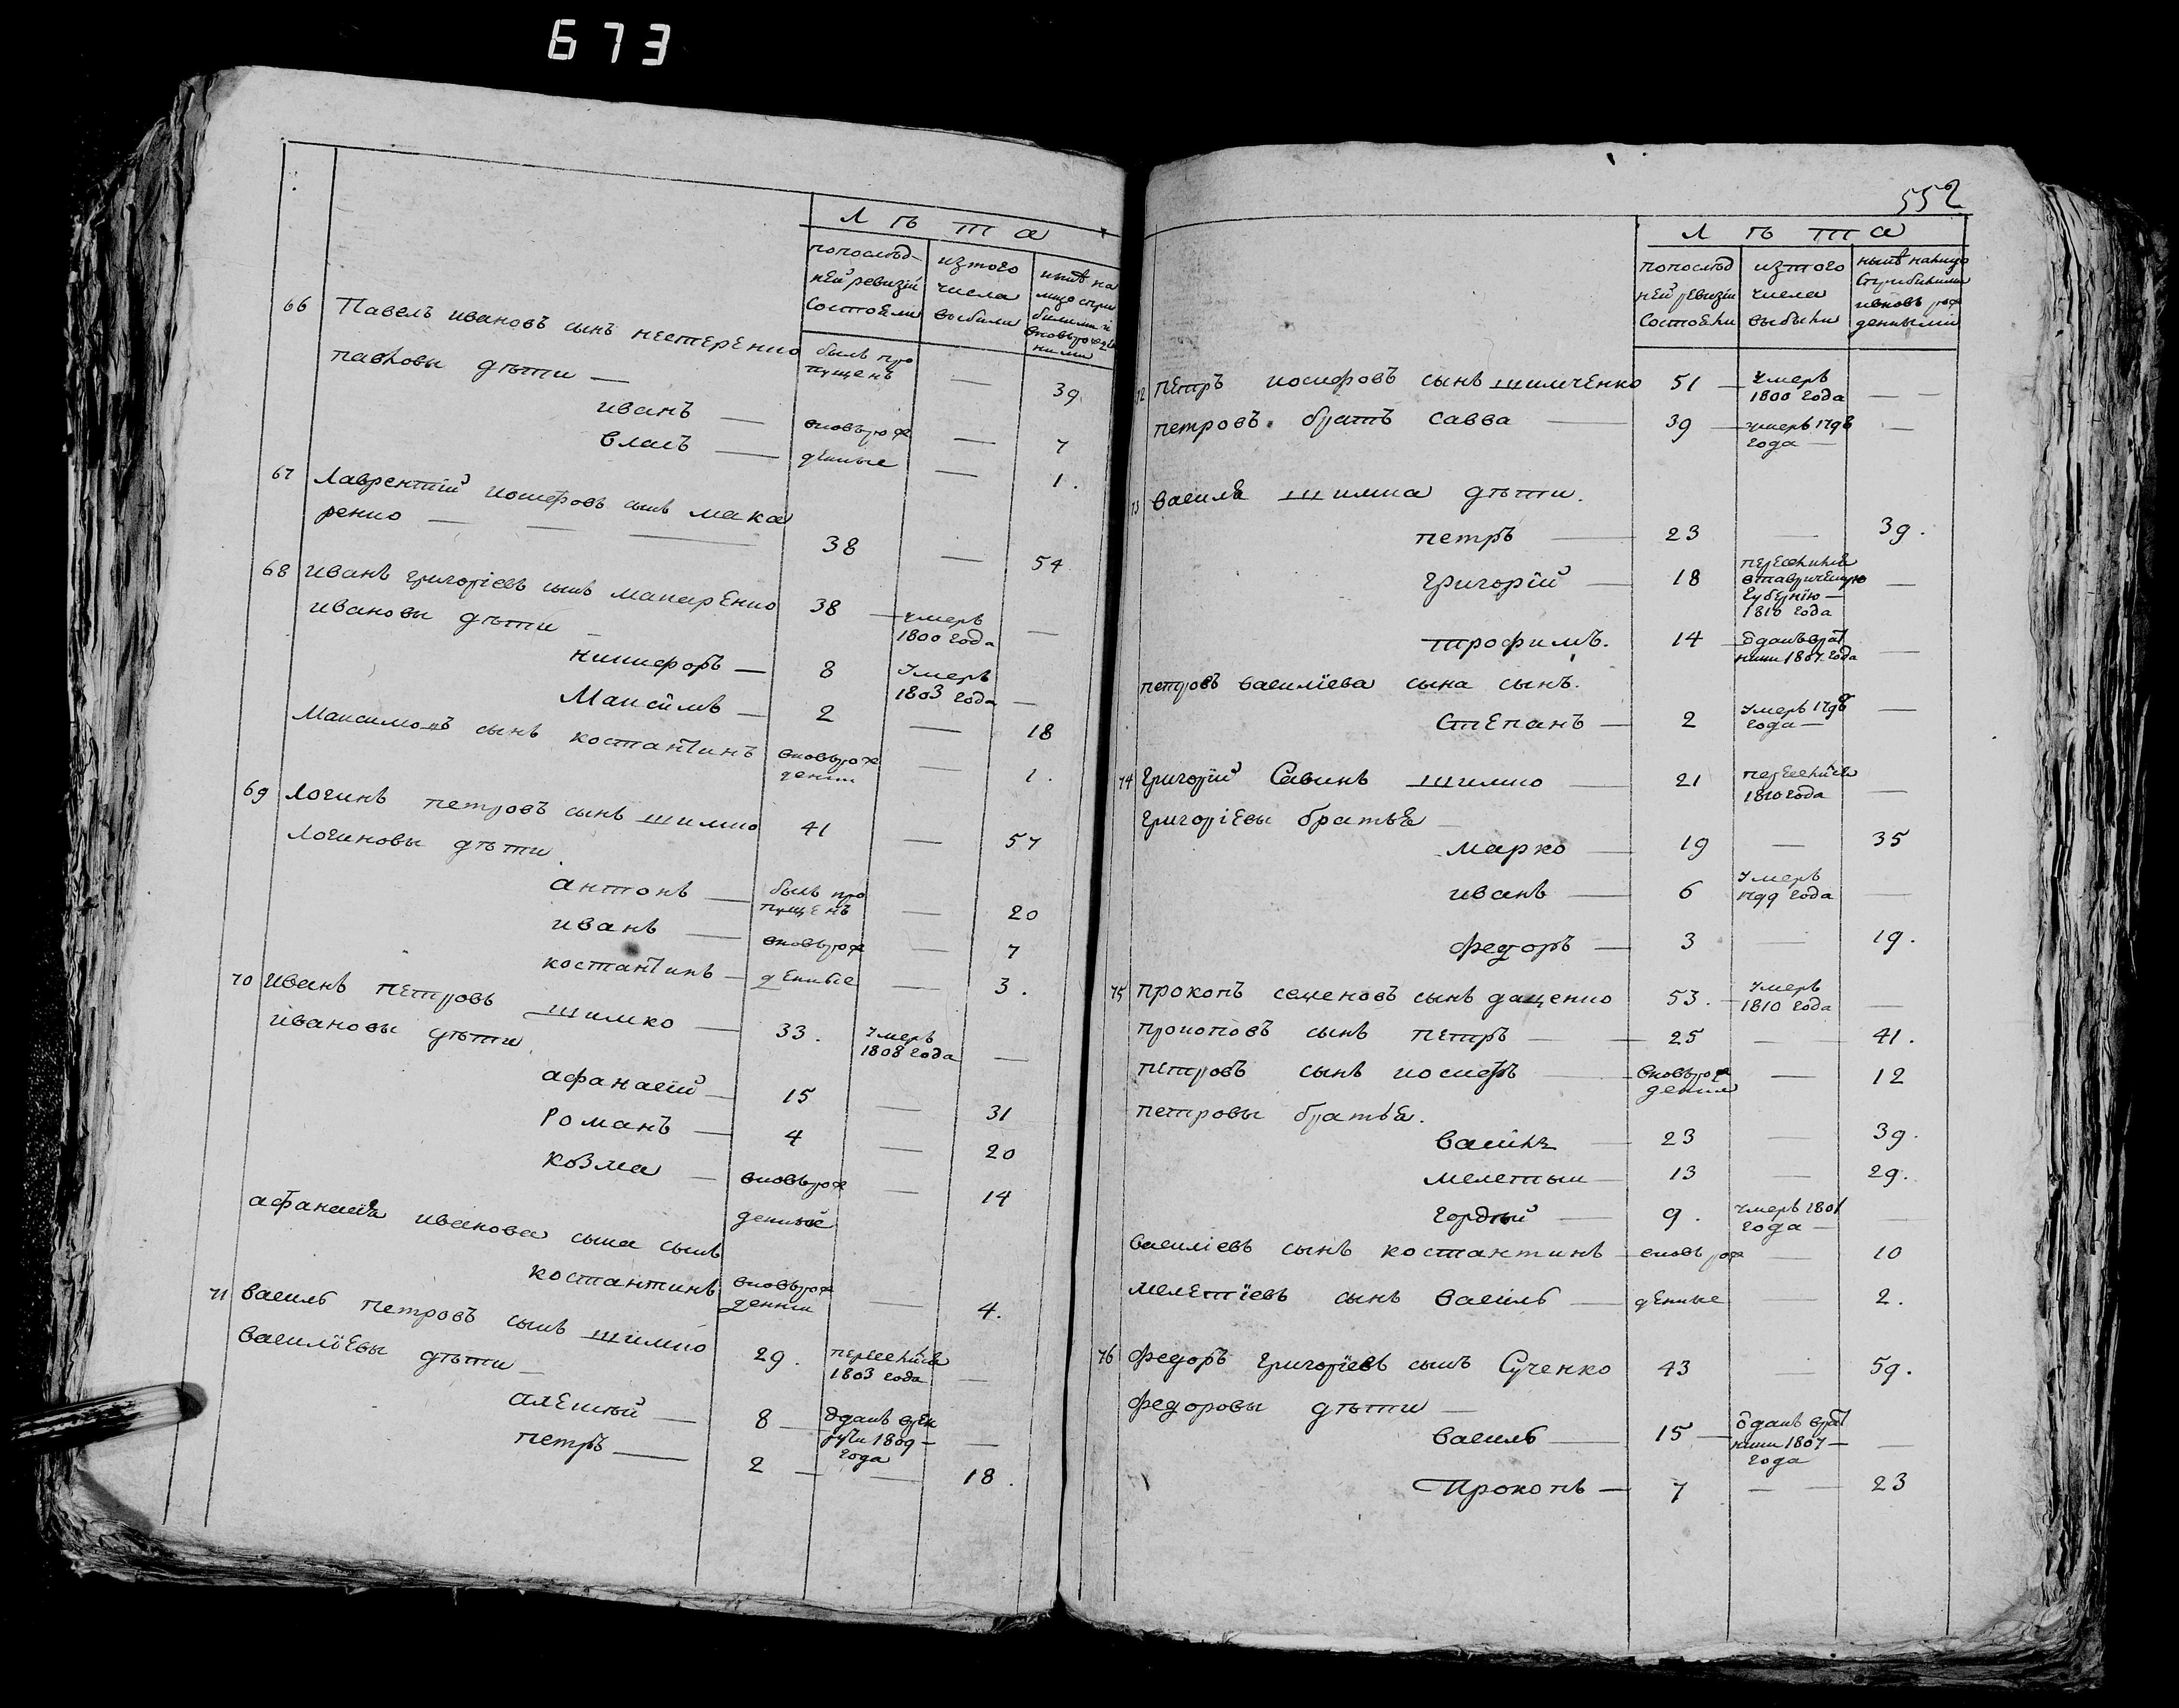 673
Лѣта
попослѣд- | изтого | нынѣ на
ней ревизiи | числа | лицо спри
состояли | выбыли | былыми и
вновьрожде
ными
66 Павелъ ивановъ сынъ нестеренко | былъ про пущенъ | — | 39
павловы дѣти —
иванъ — | вновьрож | — | 7
власъ — | денные | — | 1.
67 Лаврентiй иосифовъ сынъ мака
ренко — — | 38 | — | 54
68 иванъ григорiевъ сынъ макаренко | 38 | умеръ 1800 года | —
ивановы дѣти —
никифоръ — | 8 | умеръ 1803 года | —
Максимъ — | 2 | — | 18
Максимовъ сынъ костантинъ | вновьрож денны | — | 1.
69 логинъ петровъ сынъ шимко | 41 | — | 57
логиновы дѣти
антонъ — | былъ про пущенъ | — | 20
иванъ — | вновьрож | — | 7
костантинъ — | денные | — | 3.
70 иванъ петровъ шимко — | 33. | умеръ 1808 года | —
ивановы дѣти
афанасiй — | 15 | — | 31
романъ — | 4 | — | 20
козма — | вновьрож денный | — | 14
афанасiя иванова сына сынъ
костантинъ | вновьрож денны | — | 4.
71 василь петровъ сынъ шимко | 29. | переселился 1803 года | —
василiевы дѣти —
алексѣй — | 8 | ѿданъ врек руты 1809 года | —
петръ — | 2 | — | 18.
552
Лѣта
попослѣд | изтого | нынѣ налицо
ней ревизiи | числа | сприбылыми
состояли | выбыли | ивновь рож
денными
72 петръ иосифовъ сынъ шимченко | 51 | умеръ 1800 года | —
петровъ братъ савва — | 39 | умеръ 1796 года | —
73 василя шимка дѣти.
петръ — | 23 | — | 39.
григорiй — | 18 | переселился втаврическую губернiю 1810 года | —
трофимъ. | 14 | ѿданъ врат ники 1807 года | —
петровъ василiева сына сынъ.
степанъ — | 2 | умеръ 1796 года — | —
74 григорiй Савинъ шимко — | 21 | переселился 1810 года | —
григорiевы братья —
марко — | 19 | — | 35
иванъ — | 6 | умеръ 1799 года | —
федоръ — | 3 | — | 19.
75 прокопъ семеновъ сынъ даценко | 53. | умеръ 1810 года | —
прокоповъ сынъ петръ — | 25 | — | 41.
петровъ сынъ иосифъ — | вновьрож денны | — | 12
петровы братья.
василь — | 23 | — | 39.
мелетiй — | 13 | — | 29.
гордѣй — | 9. | умеръ 1801 года — | —
василiевъ сынъ костантинъ — | вновьрож | — | 10
мелетiевъ сынъ василь — | денные | — | 2.
76 федоръ григорiевъ сынъ Сученко | 43 | — | 59.
федоровы дѣти —
василь — | 15 | ѿданъ врат ники 1807 — года | —
Прокопъ — | 7 | — | 23